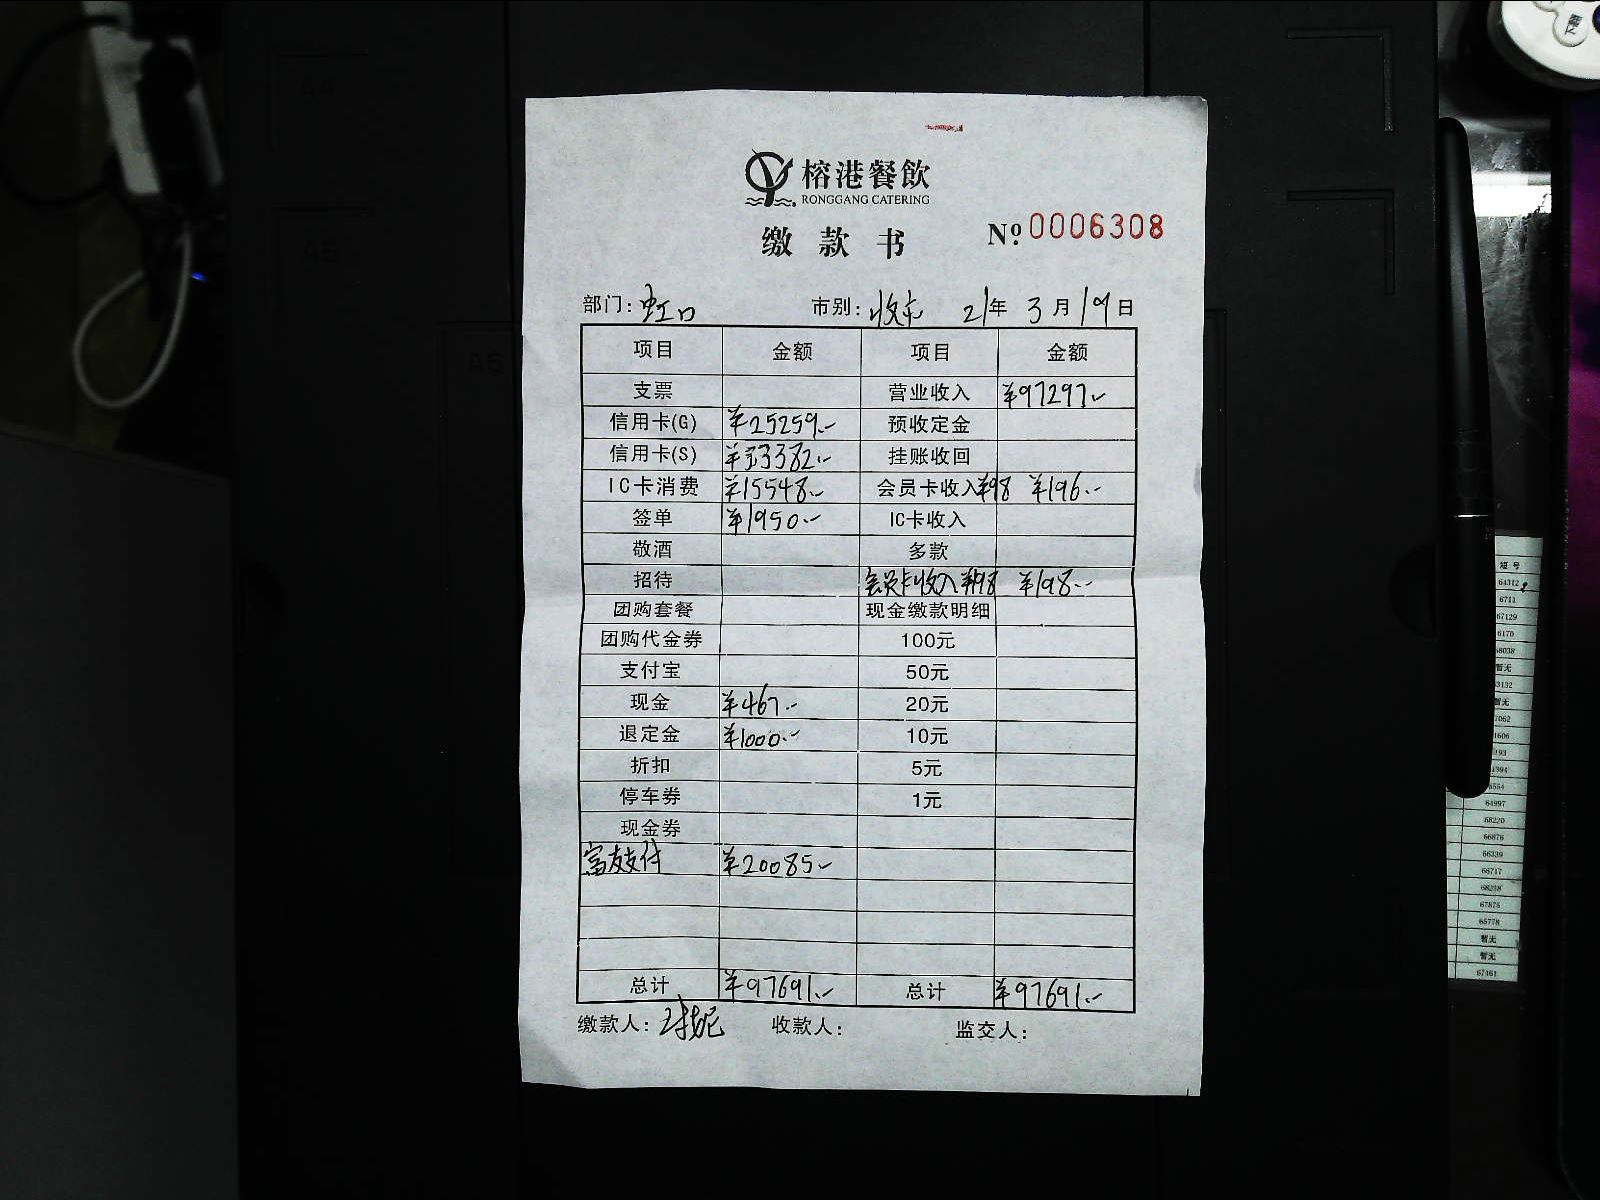 榕港餐飲
RONGGANG CATERING
缴款书 Nº 0006308
部门: 虹口 市别: 收市 21年 3月 19日
项目 金额 项目 金额
支票 营业收入 ¥97297.-
信用卡(G) ¥25259.- 预收定金
信用卡(S) ¥33382.- 挂账收回
IC卡消费 ¥15548.- 会员卡收入¥98 ¥196.-
签单 ¥1950.- IC卡收入
敬酒 多款
招待 会员卡收入¥198 ¥198.-
团购套餐 现金缴款明细
团购代金券 100元
支付宝 50元
现金 ¥467.- 20元
退定金 ¥1000.- 10元
折扣 5元
停车券 1元
现金券
富友支付 ¥20085.-
总计 ¥97691.- 总计 ¥97691.-
缴款人: 收款人: 监交人:
短号
64312
6711
67129
6170
68038
暂无
暂无
64997
68220
66876
66339
66717
68238
67875
65778
暂无
暂无
67161